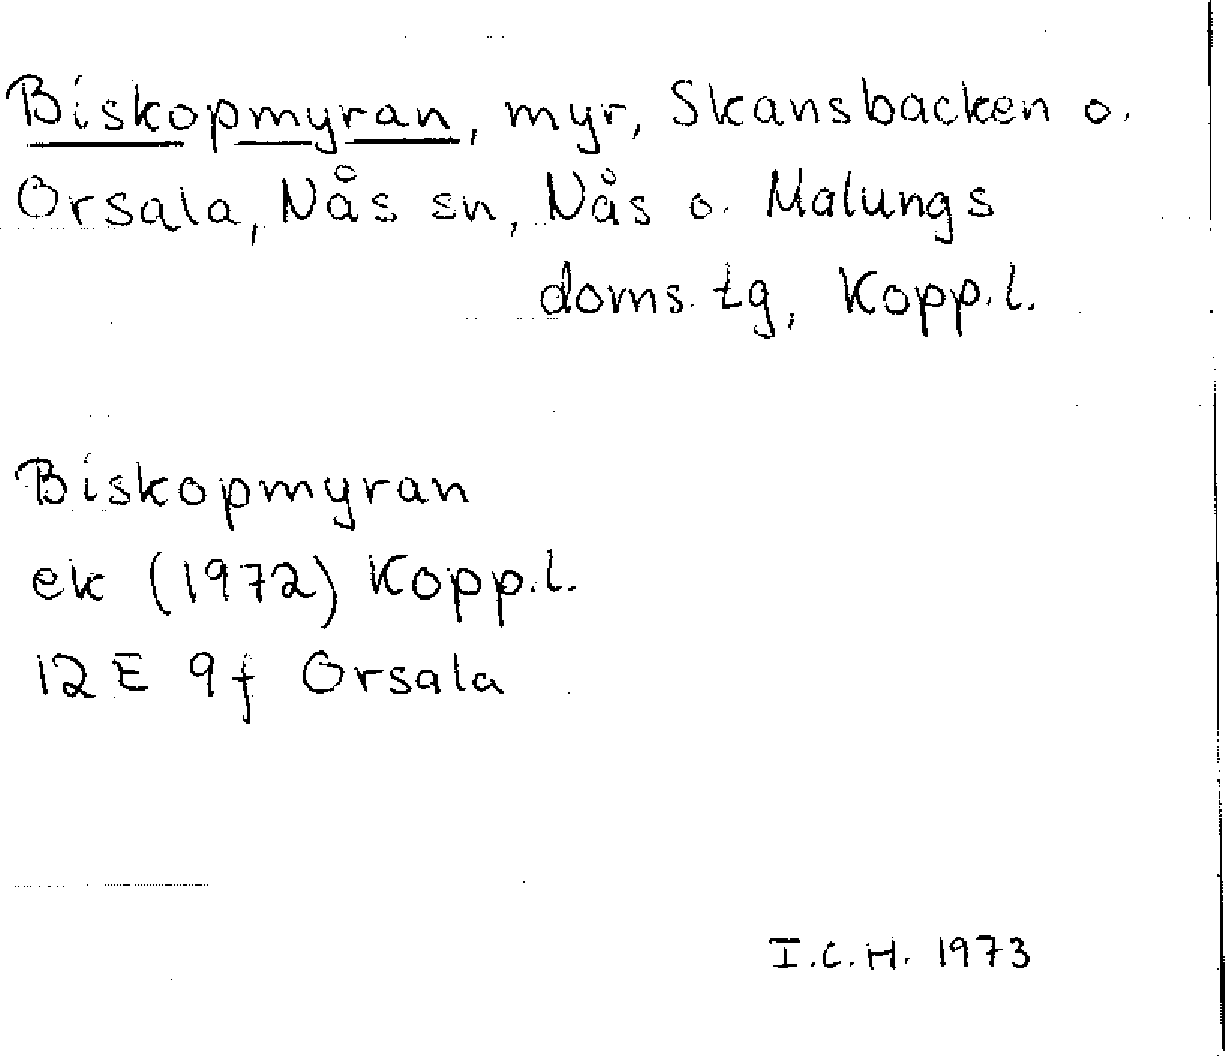 Biskopmyran, myr, Skansbacken o.
Orsala, Nås sn, Nås o. Malungs
doms. tg, Kopp. l.
Biskopmyran
ek (1972) Kopp. l.
12 E 9f Orsala
I.C.H. 1973